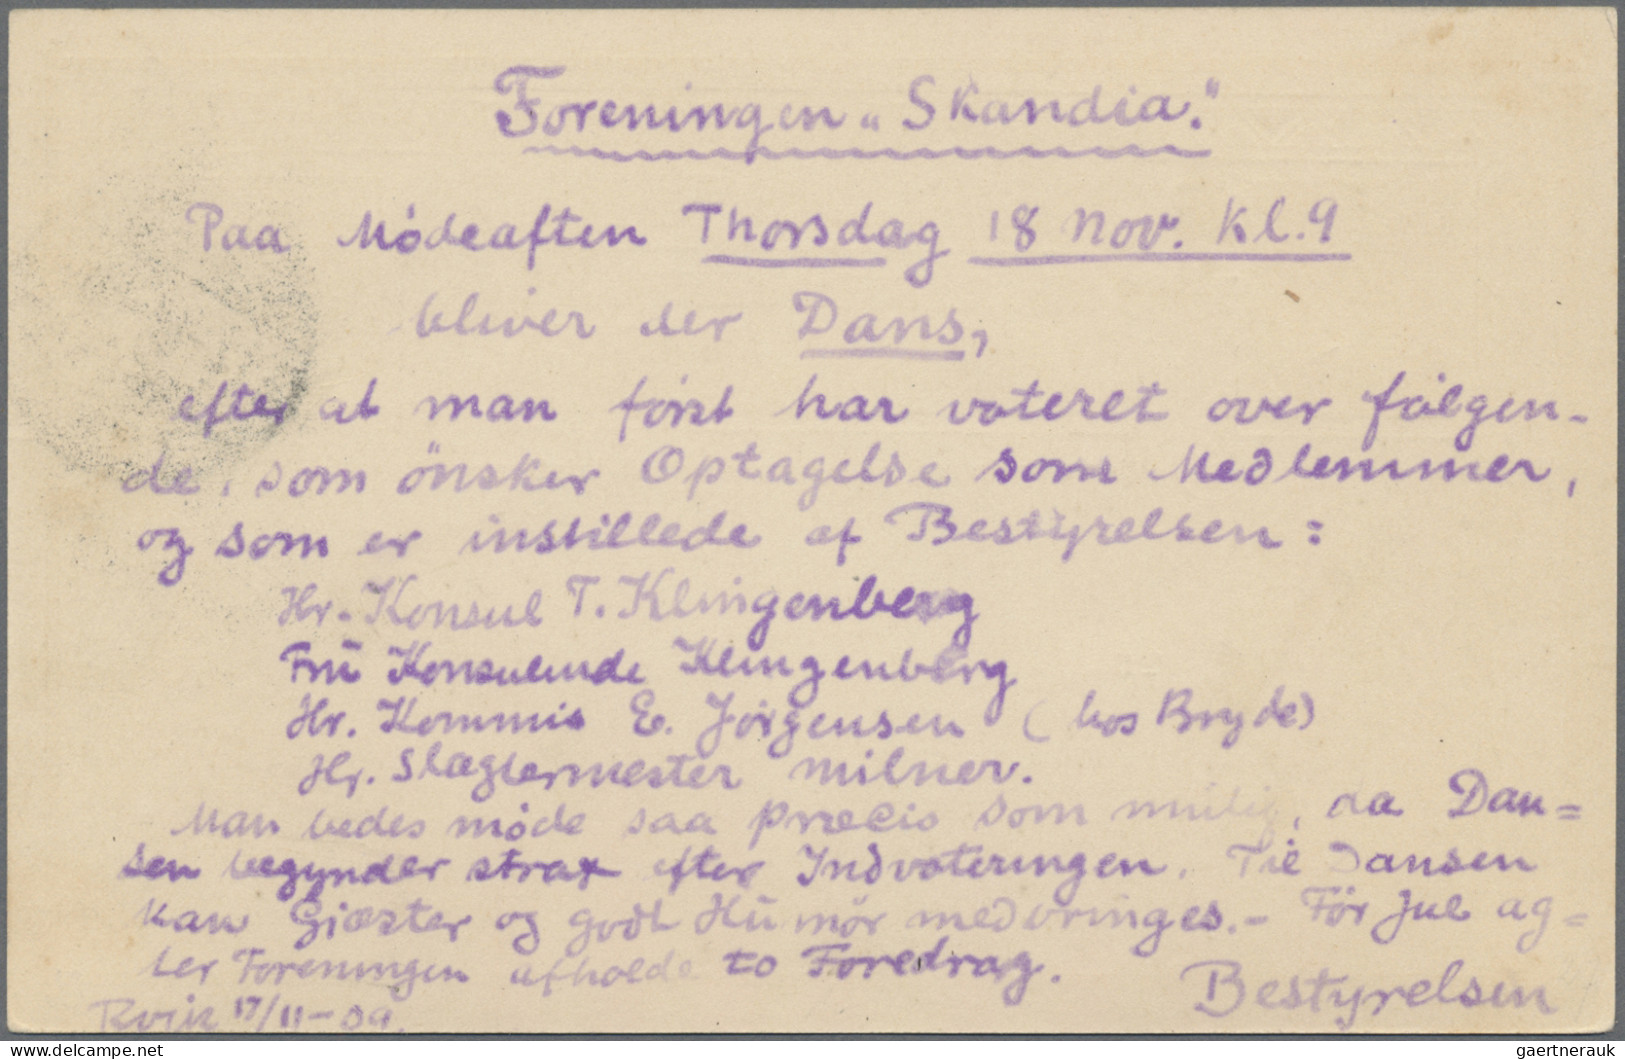 Foreningen „Skandia."
Paa Mödeaften Thorsdag 18 Nov. Kl. 9
bliver der Dans,
efter at man först har voteret over følgen-
de, som önsker Optagelse som Medlemmer,
og som er instillede af Bestyrelsen:
Hr. Konsul T. Klingenberg
Frú Konsulinde Klingenberg
Hr. Kommis E. Jörgensen (hos Bryde)
Hr. Slagtermester Milner.
Man bedes möde saa præcis som mulig, da Dan=
sen begynder strax efter Indvoteringen. Til Dansen
kan Gjæster og godt Húmör medbringes.- För Jul ag=
ter Foreningen afholde to Foredrag.
Bestyrelsen
Rvik 17/11-09.
www.delcampe.net
gaertnerauk